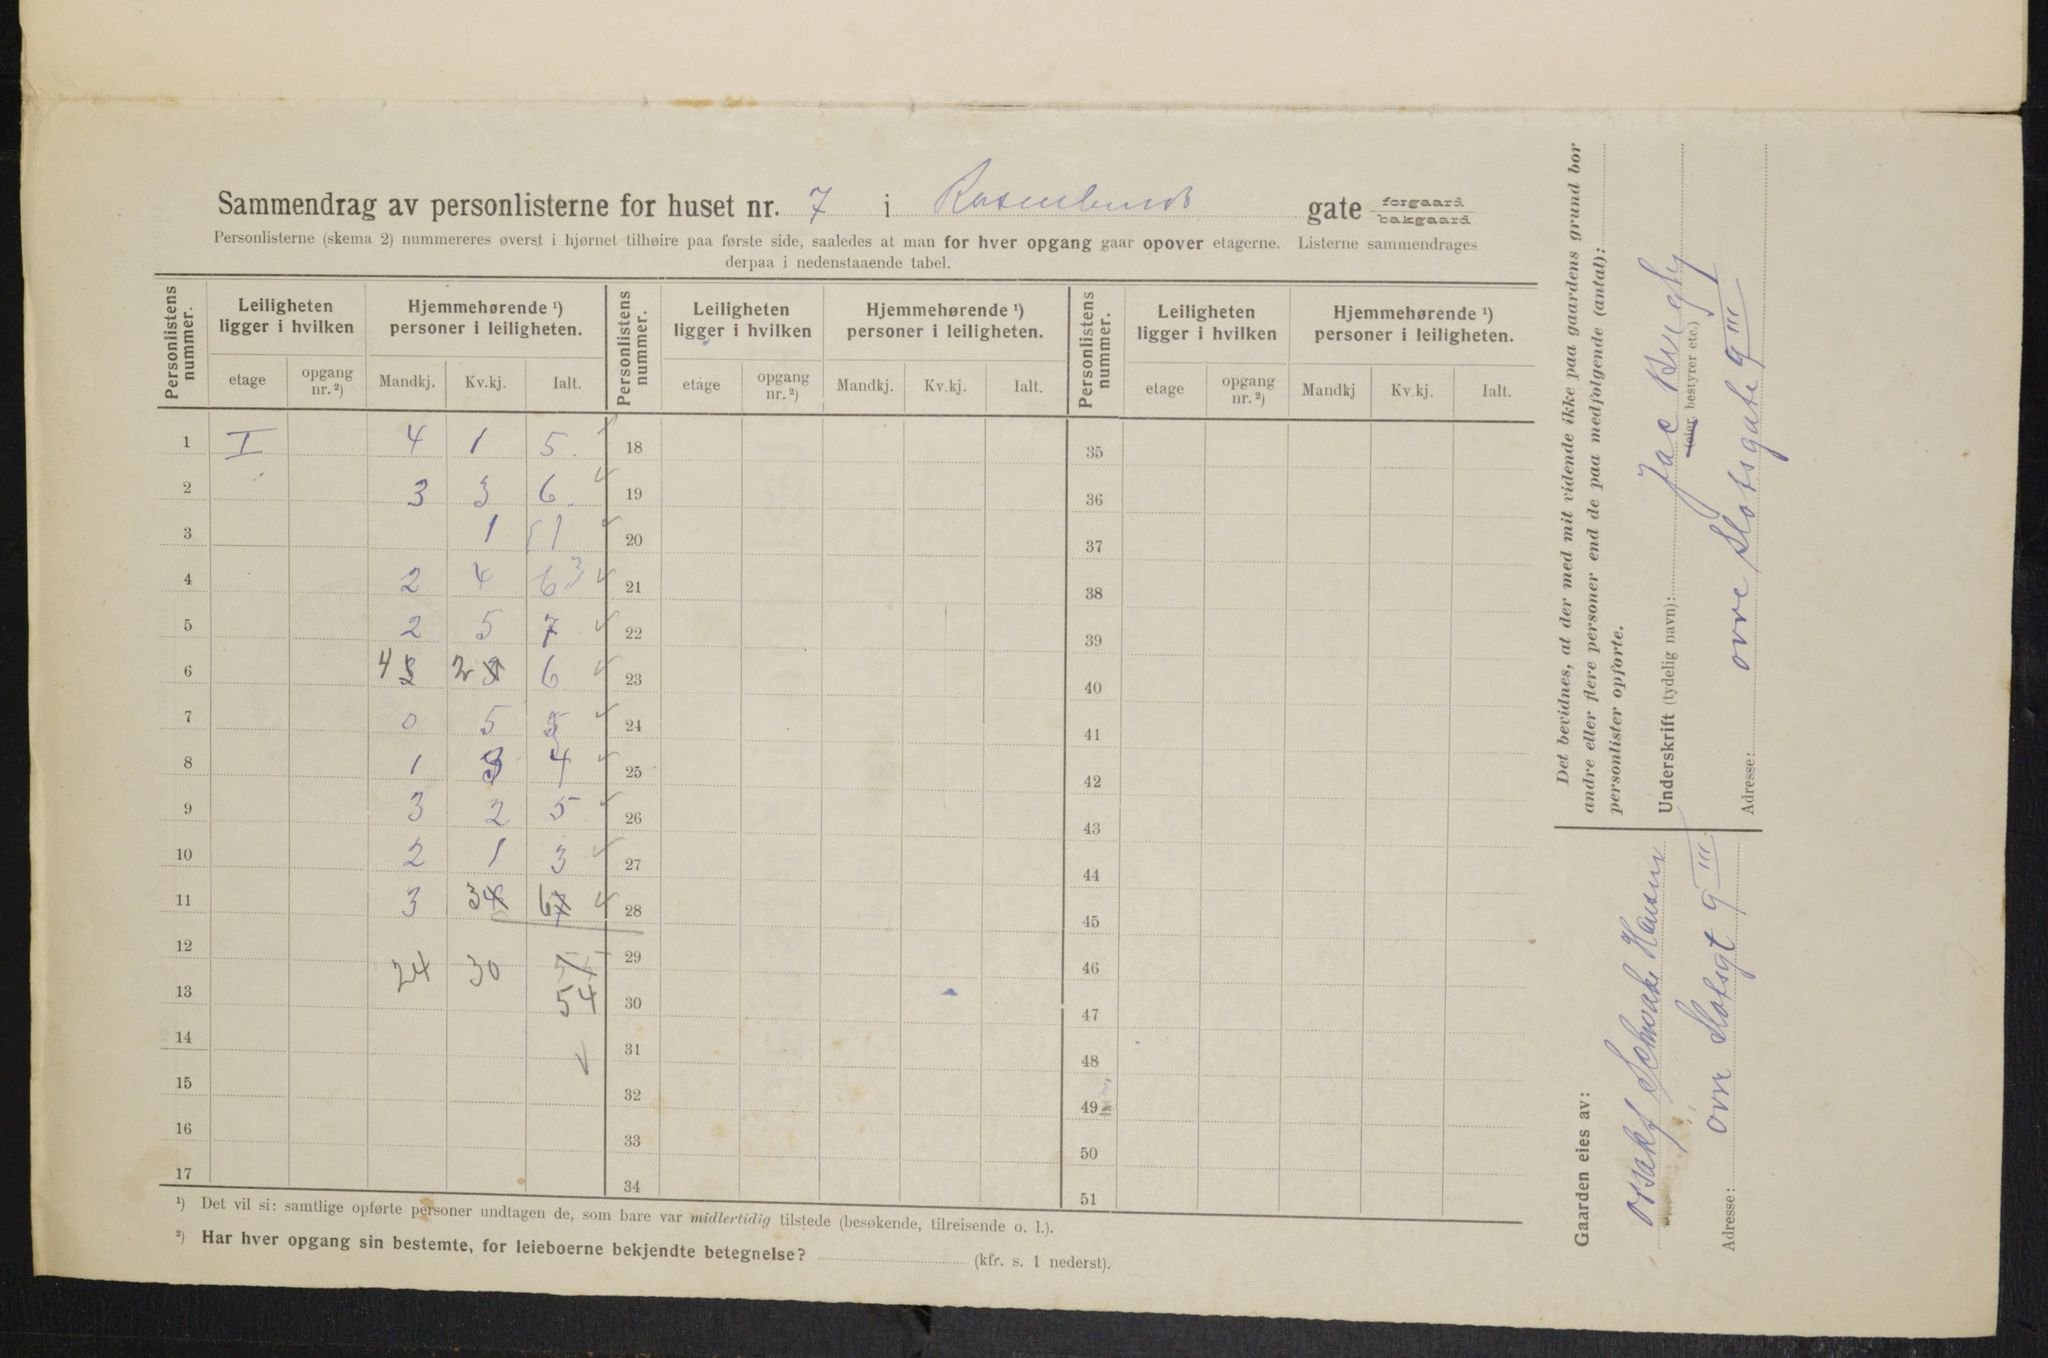 Sammendrag av personlisterne for huset nr. 7 i Rosenlunds gate forgaard bakgaard
Personlisterne (skema 2) nummereres øverst i hjørnet tilhøire paa første side, saaledes at man for hver opgang gaar opover etagerne. Listerne sammendrages
derpaa i nedenstaaende tabel.
Personlistens nummer. Leiligheten ligger i hvilken Hjemmehørende ¹) personer i leiligheten. Personlistens nummer. Leiligheten ligger i hvilken Hjemmehørende ¹) personer i leiligheten. Personlistens nummer. Leiligheten ligger i hvilken Hjemmehørende ¹) personer i leiligheten.
etage opgang nr. ²) Mandkj. Kv.kj. Ialt. etage opgang nr. ²) Mandkj. Kv.kj. Ialt. etage opgang nr. ²) Mandkj Kv.kj. Ialt.
1 I 4 1 5. 18 35
2 3 3 6. 19 36
3 1 1 20 37
4 2 4 6 3 21 38
5 2 5 7 22 39
6 4 2 6 23 40
7 0 5 5 24 41
8 1 3 4 25 42
9 3 2 5 26 43
10 2 1 3 27 44
11 3 3 4 6 7 28 45
12 24 30 29 46
13 54 30 47
14 31 48
15 32 49
16 33 50
17 34 51
¹) Det vil si: samtlige opførte personer undtagen de, som bare var midlertidig tilstede (besøkende, tilreisende o. l.).
²) Har hver opgang sin bestemte, for leieboerne bekjendte betegnelse? (kfr. s. 1 nederst).
Det bevidnes, at der med mit vidende ikke paa gaardens grund bor
andre eller flere personer end de paa medfølgende (antal):
personlister opførte.
Underskrift (tydelig navn): Jac
(eier, bestyrer etc.)
Adresse: øvre Slotsgate 9 III
Gaarden eies av:
Schwake Hansen
Adresse: øvre Slotsgt 9 III